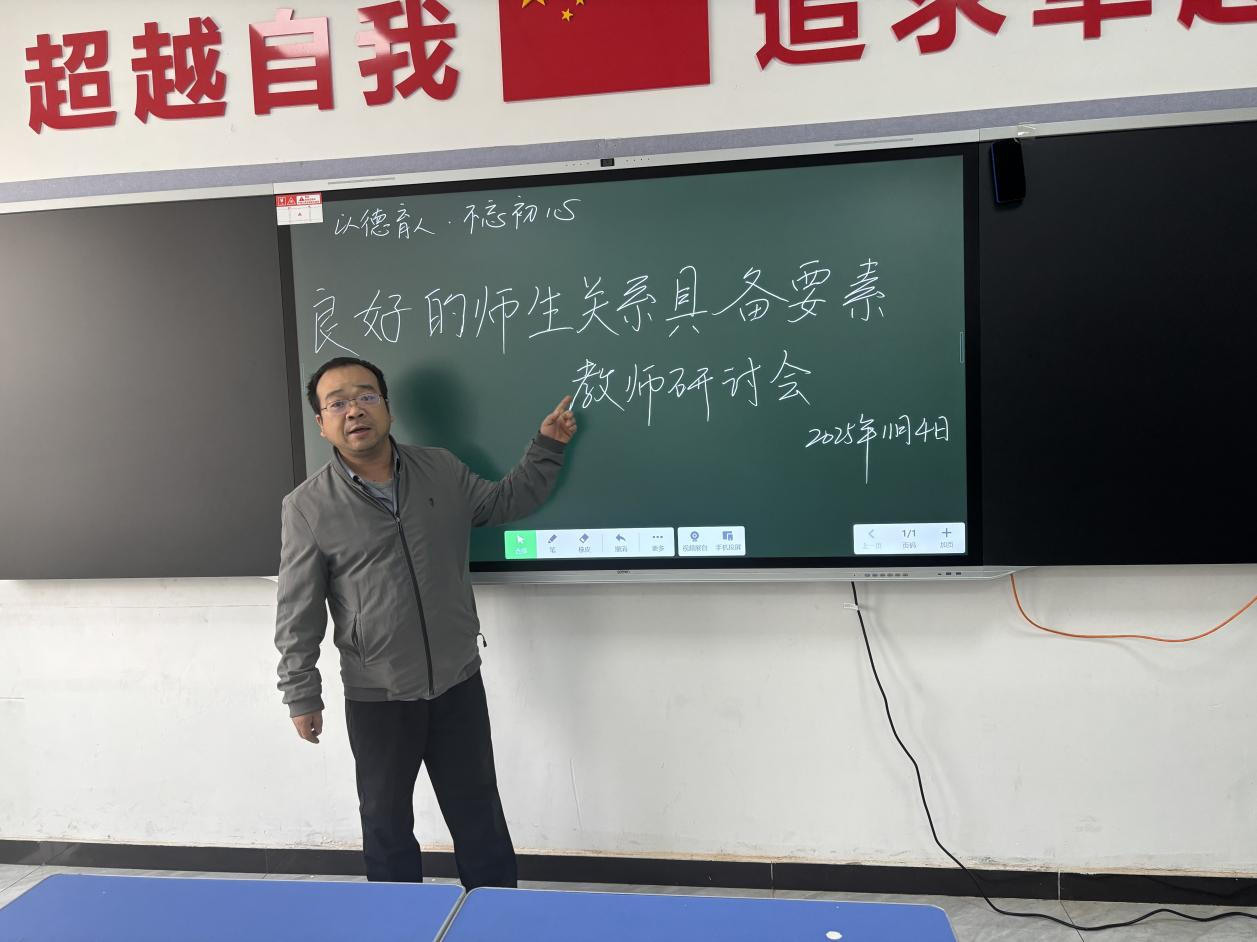 超越自我
追求卓越
以德育人·不忘初心
良好的师生关系具备要素
教师研讨会
2025年11月4日
选择 笔 橡皮 撤消 更多 视频展台 手机投屏
上一页 1/1 页码 加页